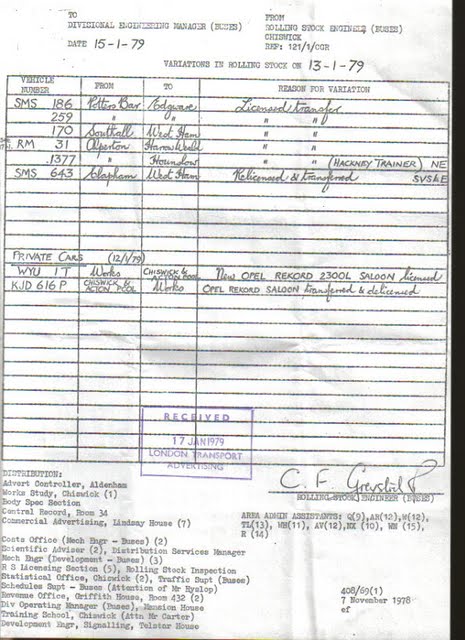 TO
DIVISIONAL ENGINEERING MANAGER (BUSES)
DATE 15-1-79
FROM
ROLLING STOCK ENGINEER (BUSES)
CHISWICK
REF: 121/1/CGR
VARIATIONS IN ROLLING STOCK ON 13-1-79
VEHICLE NUMBER FROM TO REASON FOR VARIATION
SMS 186 Potters Bar Edgware Licensed transfer
259 " " " "
170 Southall West Ham " "
RM 31 Alperton Harrow Weald " "
1377 " Hounslow " " (HACKNEY TRAINER) NE
SMS 643 Clapham West Ham Relicensed & transferred SVS&E
PRIVATE CARS (12/1/79)
WYU 1T Works CHISWICK & ACTON POOL New OPEL REKORD 2300L SALOON licensed
KJD 616P CHISWICK & ACTON POOL Works OPEL REKORD SALOON transferred & delicensed
RECEIVED
17 JAN 1979
LONDON TRANSPORT
ADVERTISING
C. F.
ROLLING STOCK ENGINEER (BUSES)
DISTRIBUTION:
Advert Controller, Aldenham
Works Study, Chiswick (1)
Body Spec Section
Central Record, Room 34
Commercial Advertising, Lindsay House (7)
AREA ADMIN ASSISTANTS: Q(9),AR(12),W(12),
TL(13), WH(11), AV(12),NX (10), WN (15),
R (14)
Costs Office (Mech Engr - Buses) (2)
Scientific Adviser (2), Distribution Services Manager
Mech Engr (Development - Buses) (3)
R S Licensing Section (5), Rolling Stock Inspection
Statistical Office, Chiswick (2), Traffic Supt (Buses)
Schedules Supt - Buses (Attention of Mr Hyslop)
Revenue Office, Griffith House, Room 432 (2)
Div Operating Manager (Buses), Mansion House
Training School, Chiswick (Attn Mr Carter)
Development Engr, Signalling, Telstar House
408/69(1)
7 November 1978
ef